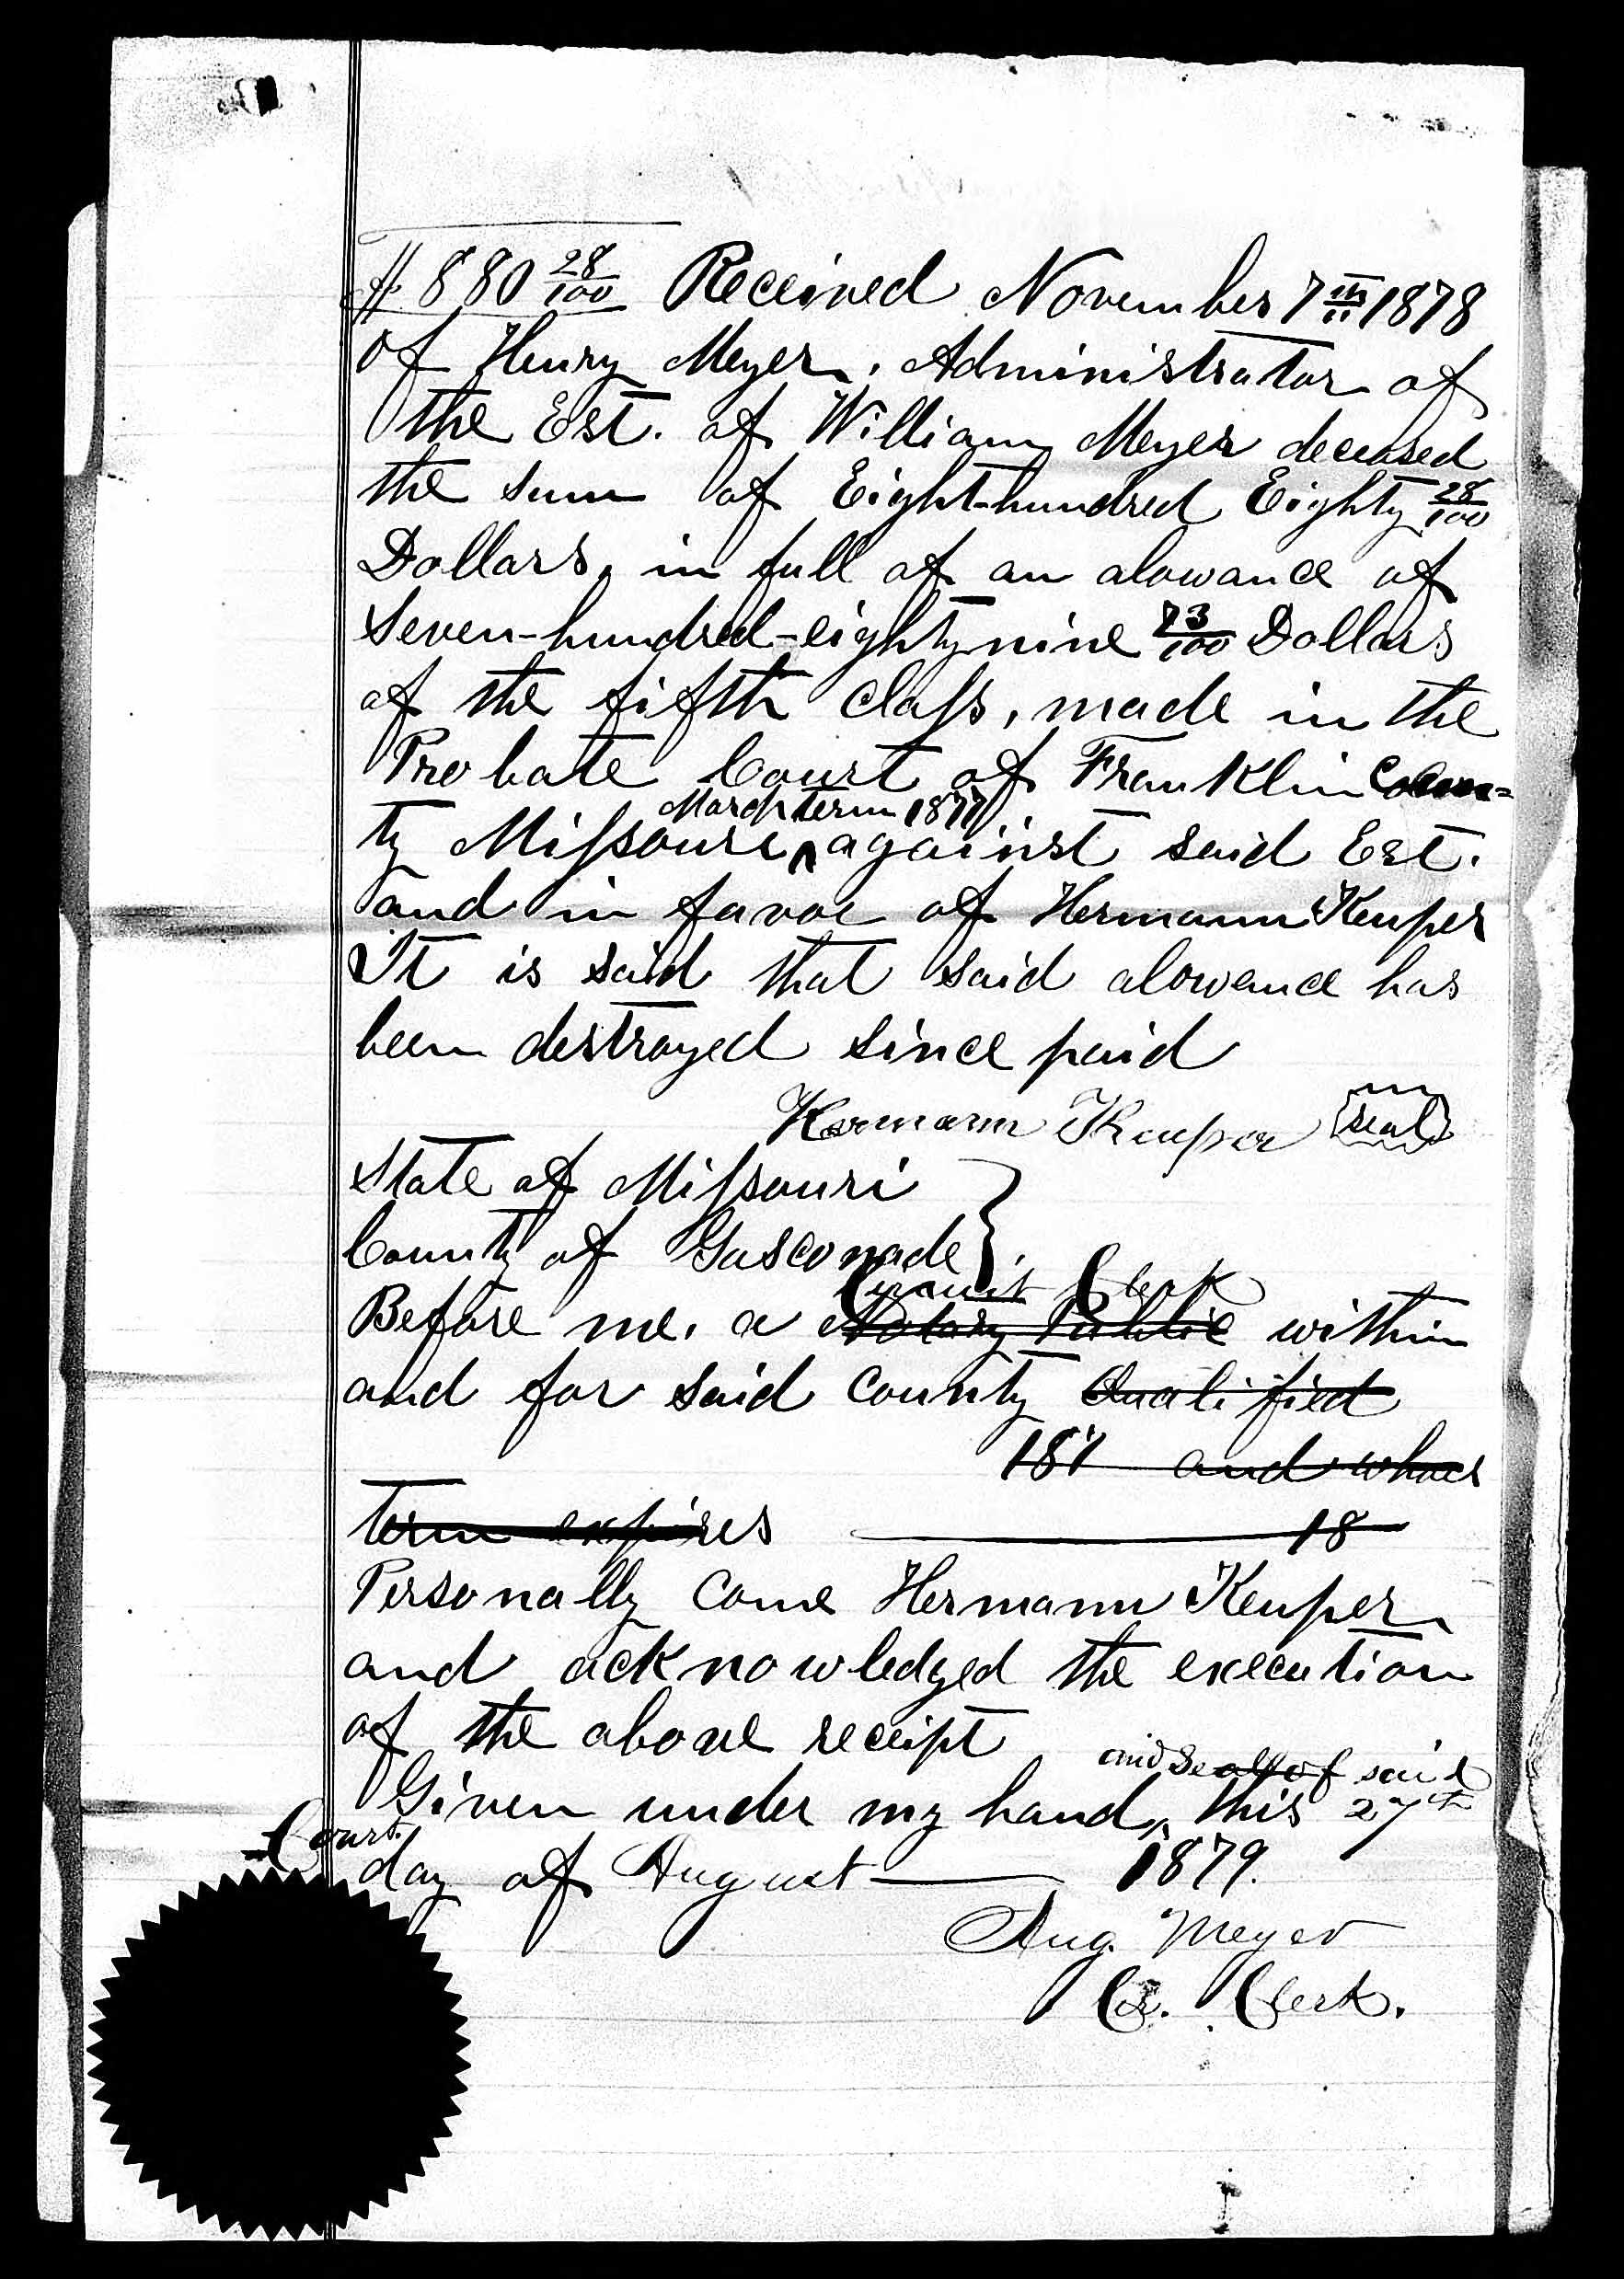 $ 880 28/100 Received November 7th 1878
of Henry Meyer, Administrator of
the Est. of William Meyer deceased
the sum of Eight-hundred Eighty 28/100
Dollars, in full of an alowance of
Seven-hundred-eighty nine 73/100 Dollars
of the fifth Class, made in the
Probate Court of Franklin Coun=
March term 1877
ty Missouri, against said Est.
and in favor of Hermann Keuper
It is said that said alowance has
been destroyed since paid
Hermann Keuper seal
State of Missouri
County of Gasconade
Circuit Clerk
Before me, a Notary Public within
and for said County Qualified
187 and whoes
term expires 18
Personally came Hermann Keuper
and acknowledged the execution
of the above receipt
and Seal of said
Given under my hand, this 27th
Court.
day of August 1879.
Aug. Meyer
Cir. Clerk.